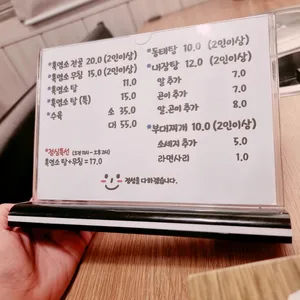 *흑염소 전골 20.0 (2인이상)
*흑염소 무침 15.0 (2인이상)
*흑염소 탕 11.0
*흑염소 탕 (특) 15.0
*수육 소 35.0
대 55.0
*점심특선
흑염소 탕+무침 = 17.0
*동태탕 10.0 (2인이상)
*내장탕 12.0 (2인이상)
알 추가 7.0
곤이 추가 7.0
알.곤이 추가 8.0
*부대찌개 10.0 (2인이상)
소세지 추가 5.0
라면사리 1.0
정성을 다하겠습니다.